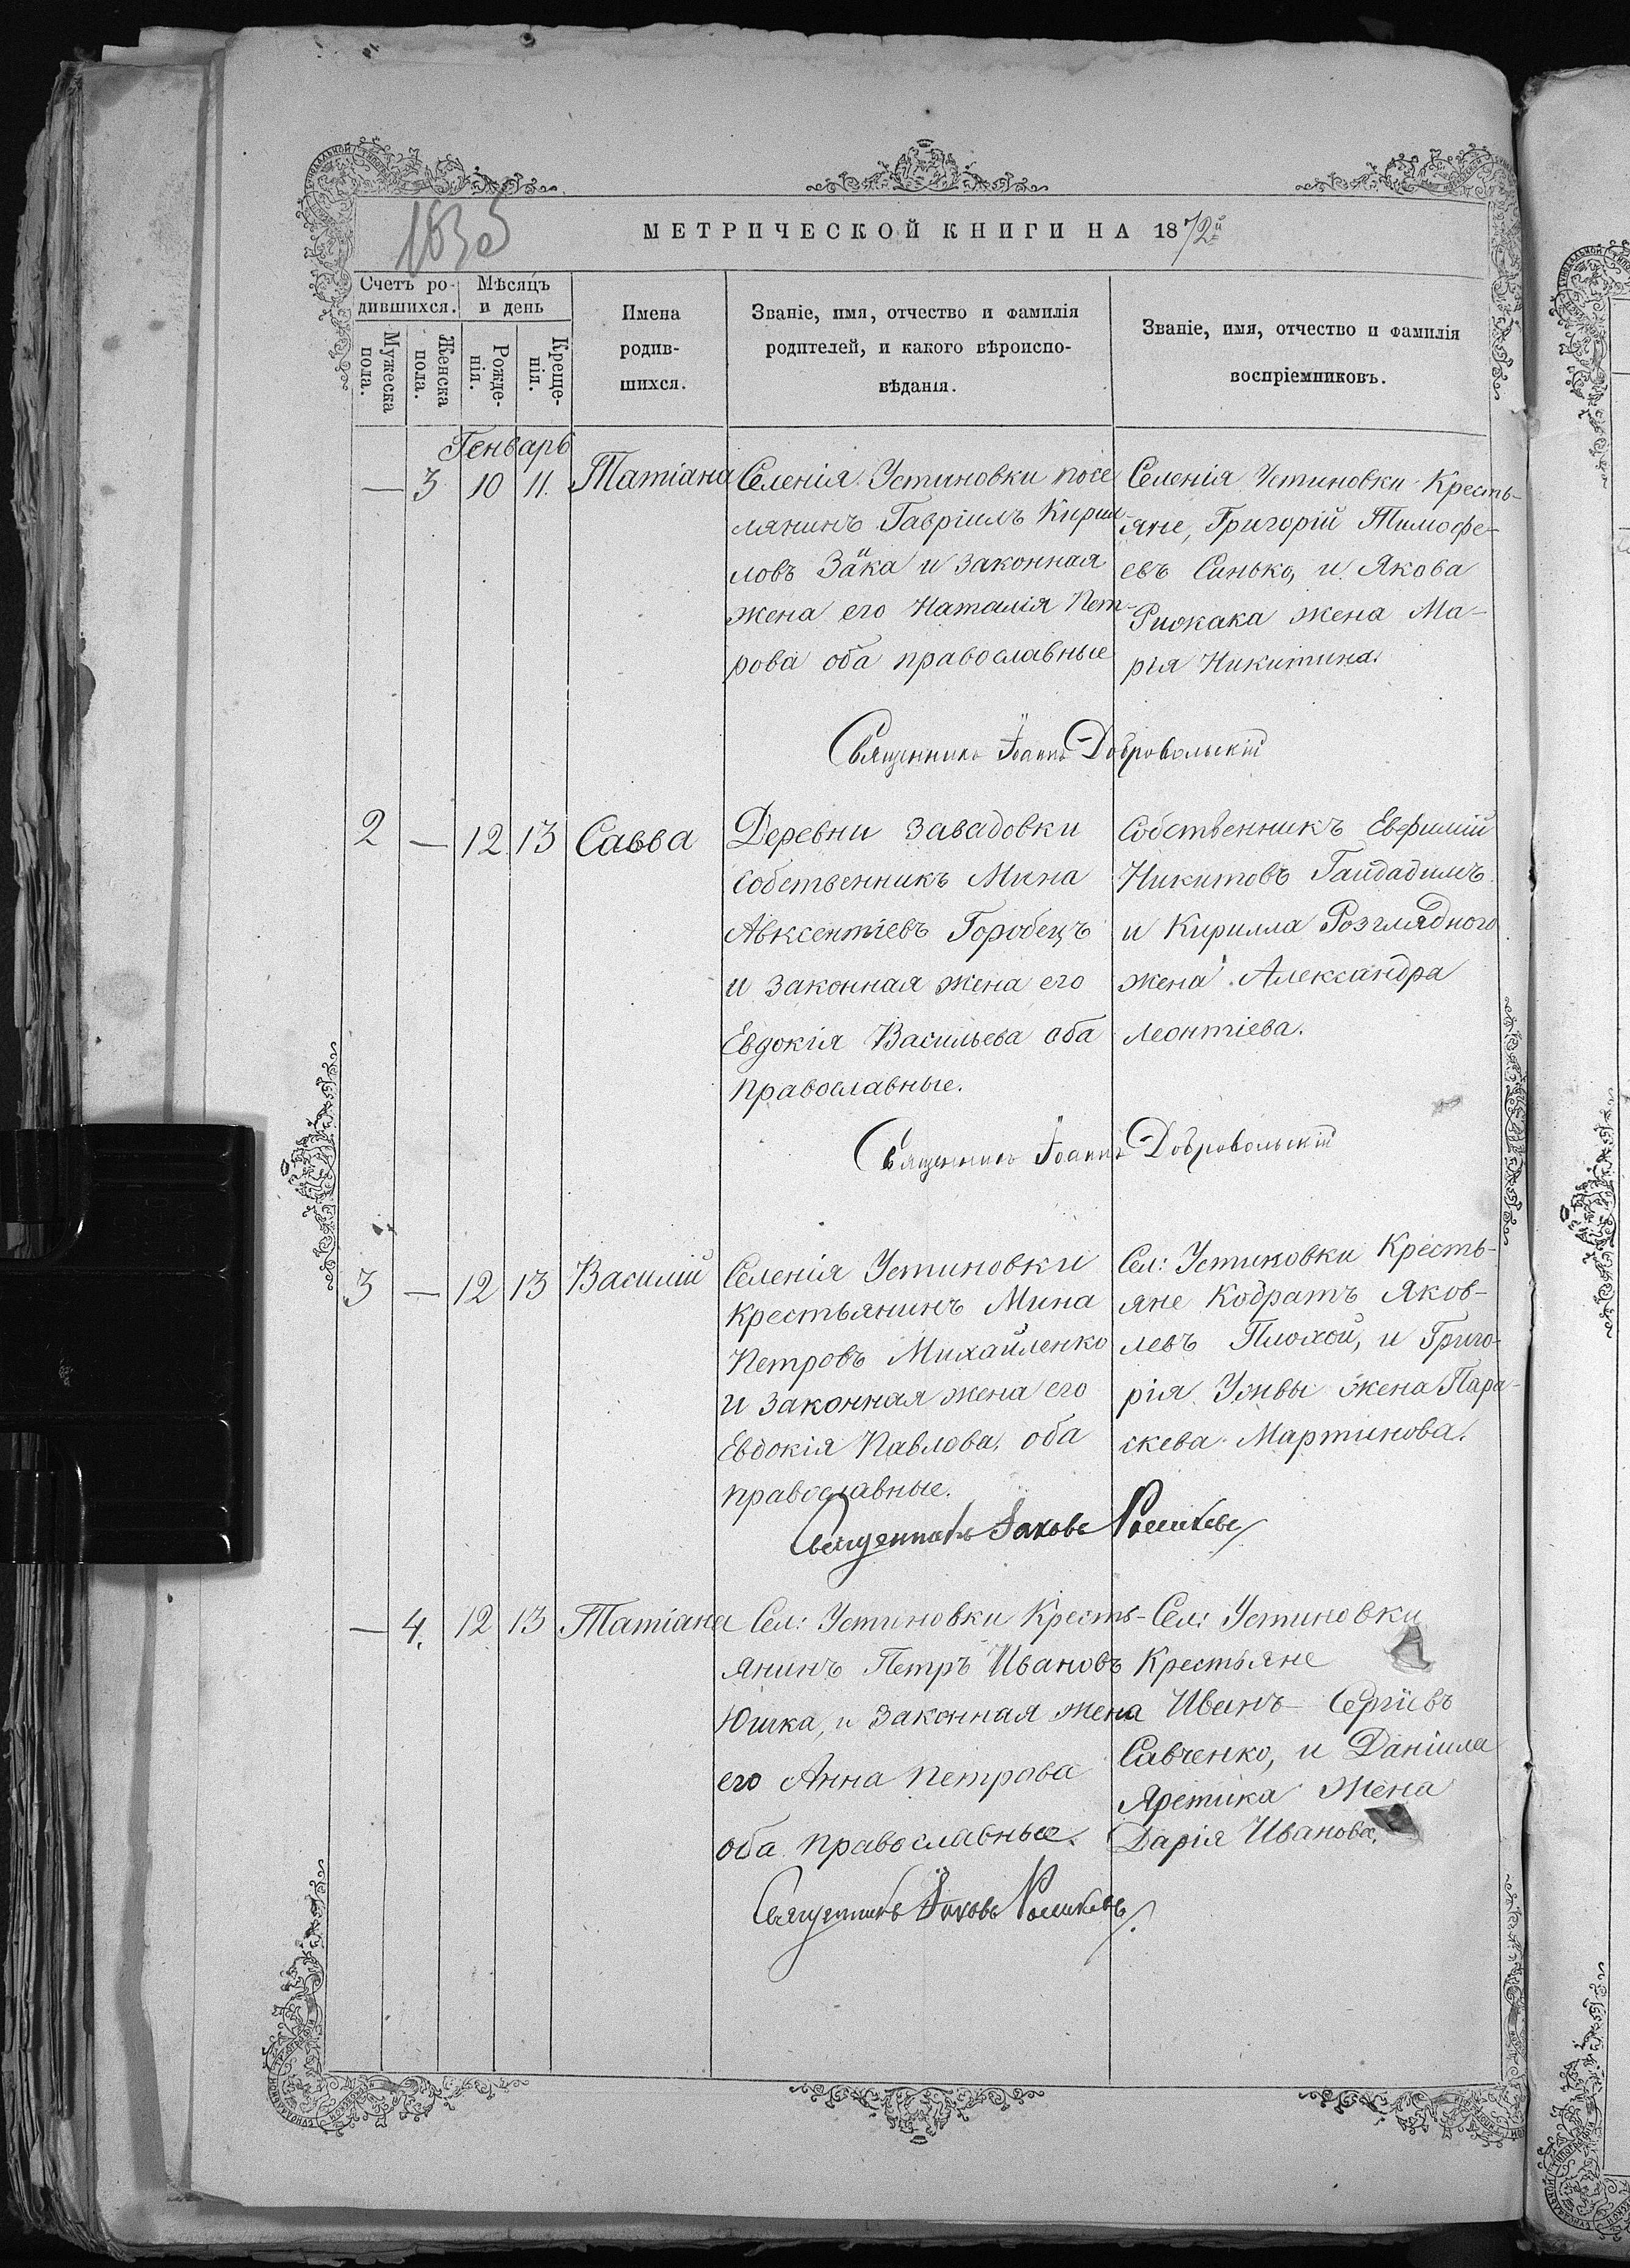 МЕТРИЧЕСКОЙ КНИГИ НА 1872й
Счетъ ро-
дившихся.
Мѣсяцъ
и день
Мужеска
пола.
Женска
пола.
Рожде-
нія.
Креще-
нія.
Имена
родив-
шихся.
Званіе, имя, отчество и фамилія
родителей, и какого вѣроиспо-
вѣданія.
Званіе, имя, отчество и фамилія
воспріемниковъ.
Генварь
— 3 10 11. Татіана
Селенія Устиновки посе
лянинъ Гавріилъ Кирил-
ловъ Заика и законная
жена его Наталія Пет-
рова оба православные
Селенія Устиновки Кресть-
яне, Григорій Тимофе-
евъ Синько, и Якова
жена Ма-
рія Никитина.
Священникъ Іоаннъ Добровольскій
2 — 12 13 Савва
Деревни Завадовки
собственникъ Мина
Авксентіевъ Горобецъ
и законная жена его
Евдокія Васильева оба
православные.
Собственникъ Евфимій
Никитовъ
и Кирилла Розглядного
жена Александра
Леонтіева.
Священникъ Іоаннъ Добровольскій
3 — 12 13 Василій
Селенія Устиновки
крестьянинъ Мина
Петровъ Михайленко
и законная жена его
Евдокія Павлова, оба
православные.
Сел: Устиновки Кресть-
яне Кодратъ Яков-
левъ Плохой, и Григо-
рія жена Пара-
скева Мартинова.
Священникъ Іаковъ
— 4. 12 13 Татіана
Сел: Устиновки Кресть-
янинъ Петръ Ивановъ
Юшка, и законная жена
его Анна Петрова
оба православные.
Сел: Устиновки
Крестьяне
Иванъ Сергіевъ
Савченко, и Даніила
жена
Дарія Иванова.
Священникъ Іаковъ